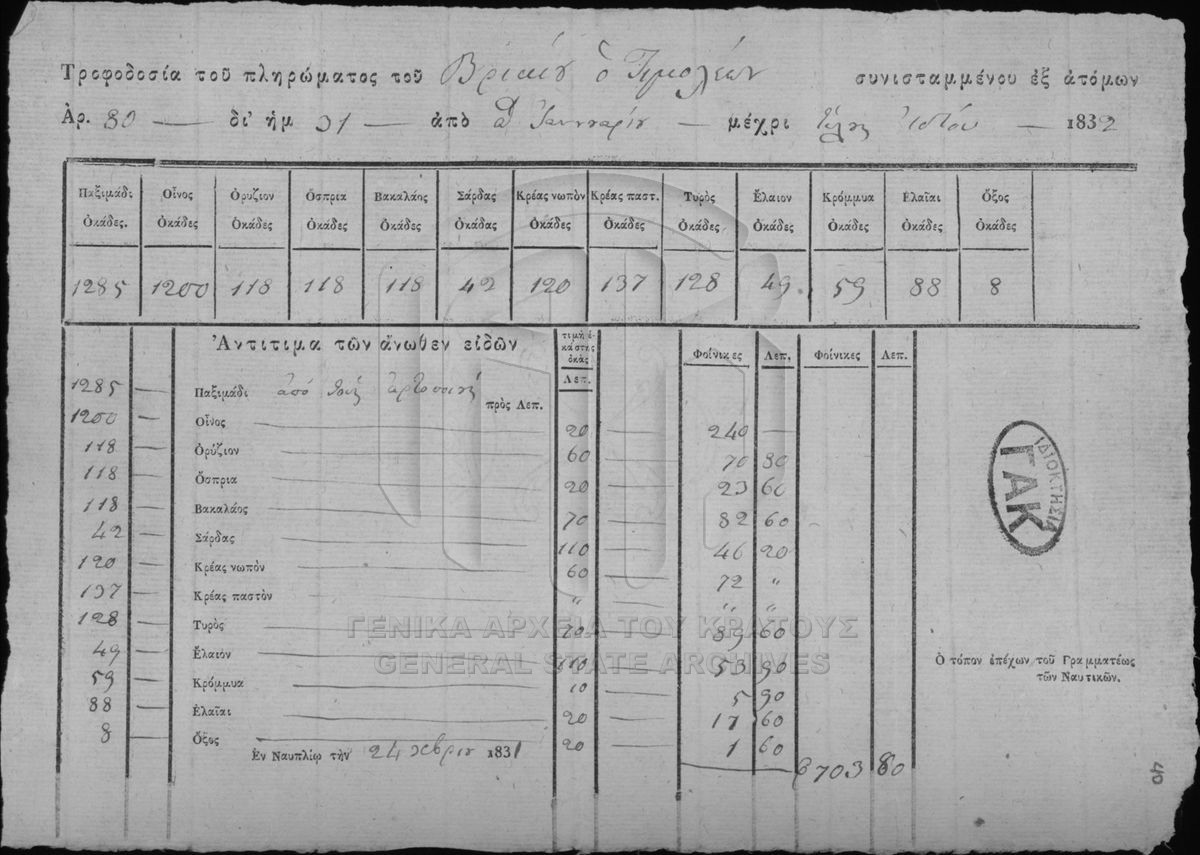 Τροφοδοσία τοῦ πληρώματος τοῦ Βρικίου ὁ Τιμολέων συνισταμμένου ἐξ ἀτόμων
Ἀρ. 80 — δι' ἡμ 31 — ἀπὸ α Ἰανουαρίου — μέχρι τέλη ἰδίου — 1832
Παξιμάδι Ὀκάδες. Οἶνος Ὀκάδες Ὀρυζιον Ὀκάδες Ὄσπρια Ὀκάδες Βακαλάος Ὀκάδες Σάρδας Ὀκάδας Κρέας νωπὸν Ὀκάδες Κρέας παστ. Ὀκάδες Τυρὸς Ὀκάδες Ἔλαιον Ὀκάδες Κρόμμυα Ὀκάδες Ἐλαῖαι Ὀκάδες Ὄξος Ὀκάδες
1285 1200 118 118 118 42 120 137 128 49. 59 88 8
Ἀντιτιμα τῶν ἄνωθεν εἰδῶν τιμὴ ἑκάστης ὀκᾶς Λεπ. Φοίνικες Λεπ. Φοίνικες Λεπ.
1285 — Παξιμάδι ἀπὸ πρὸς Λεπ.
1200 — Οἶνος 20 — 240 —
118 — Ὀρύζιον 60 — 70 80
118 — Ὄσπρια 20 — 23 60
118 — Βακαλάος 70 — 82 60
42 — Σάρδας 110 — 46 20
120 — Κρέας νωπὸν 60 — 72 "
137 — Κρέας παστὸν " — " "
128 — Τυρὸς 70 — 89 60
49 — Ἔλαιον 110 — 53 90
59 — Κρόμμυα 10 — 5 90
88 — Ἐλαῖαι 20 — 17 60
8 — Ὄξος 20 — 1 60
Ἐν Ναυπλίῳ τὴν 24 1831
703 80
Ὁ τόπον ἐπέχων τοῦ Γραμματέως
τῶν Ναυτικῶν.
ΙΔΙΟΚΤΗΣΙΑ
ΓΑΚ
40
ΓΕΝΙΚΑ ΑΡΧΕΙΑ ΤΟΥ ΚΡΑΤΟΥΣ
GENERAL STATE ARCHIVES